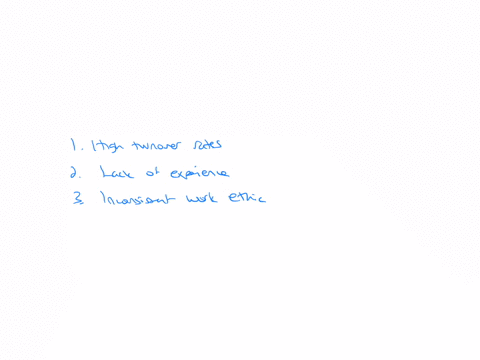 1. High turnover rates
2. Lack of experience
3. Inconsistent work ethic